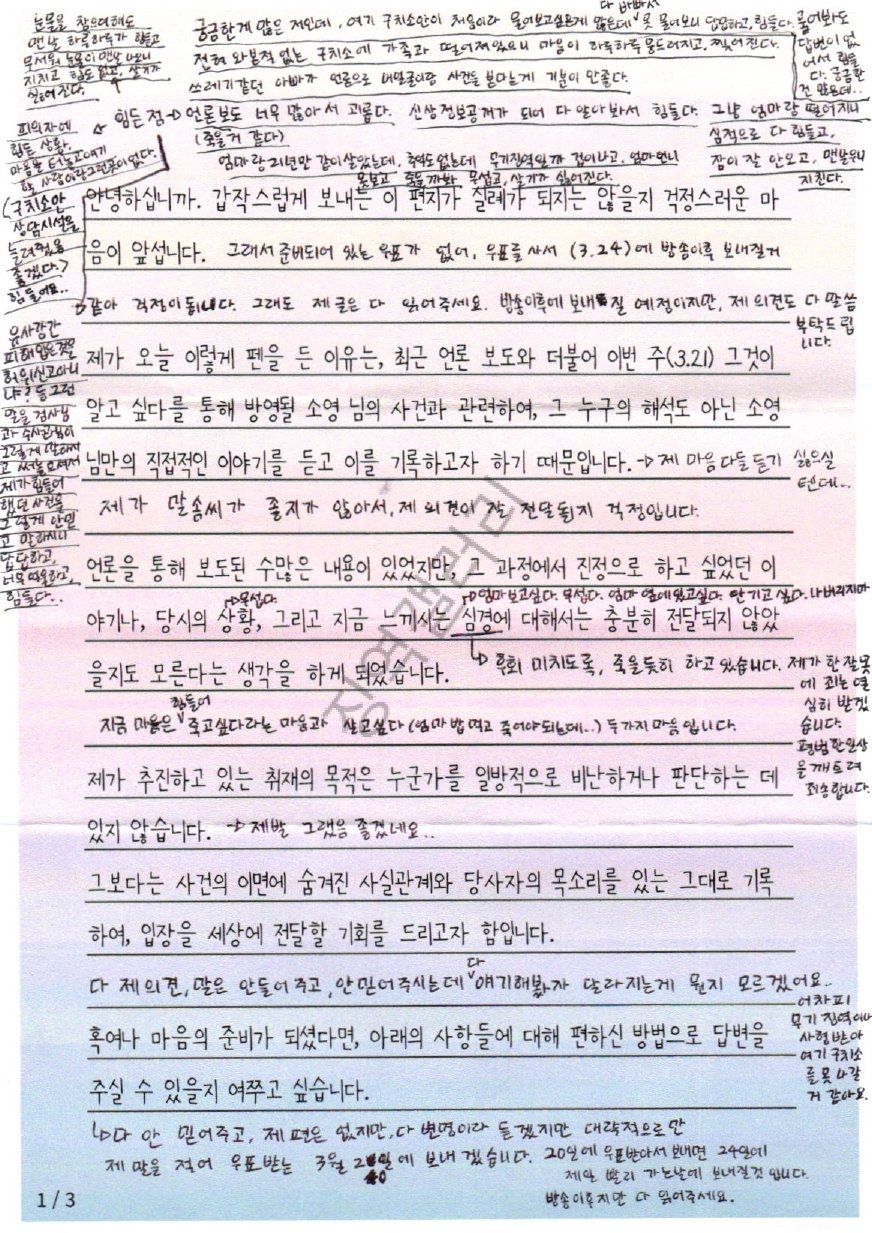 눈물을 참으려해도
맨날 하루하루가 힘들고
무서워 눈물이 맨날 나오니
지치고 힘도 없고, 살기가
싫어진다.
궁금한게 많은 저인데, 여기 구치소안이 처음이라 물어보고싶은게 많은데 다 바빠서 못 물어보니 답답하고, 힘들다. 물어봐도
답변이 없어서 힘들다. 궁금한건 많은데...
전혀 와본적 없는 구치소에 가족과 떨어져있으니 마음이 하루하루 뭉드러지고, 찢어진다.
쓰레기같던 아빠가 언론으로 내얼굴이랑 사건을 본다는게 기분이 안좋다.
힘든점 → 언론보도 너무 많아서 괴롭다. 신상정보공개가 되어 다 알아봐서 힘들다.
(죽을거 같다)
그냥 엄마랑 떨어지니
심적으로 다 힘들고,
잠이 잘 안오고, 맨날우니
지친다.
엄마랑 21년만 같이살았는데, 면역도없는데 무기징역일까 겁이나고, 엄마언니
못보고 죽을까봐 무섭고, 살기가 싫어진다.
피의자에
힘든 상황,
마음을 터놓고 얘기
할 사람이란 그런 곳이 없다.
(구치소안
상담시설을
늘려줬음
좋겠다.)
힘들어요..
안녕하십니까. 갑작스럽게 보내는 이 편지가 실례가 되지는 않을지 걱정스러운 마
음이 앞섭니다. 그래서 준비되어 있는 우표가 없어, 우표를 사서 (3.24)에 방송이후 보내질거
같아 걱정이 됩니다. 그래도 제 글은 다 읽어주세요. 방송이후에 보내질 예정이지만, 제 의견도 다 말씀
부탁드립
니다.
제가 오늘 이렇게 펜을 든 이유는, 최근 언론 보도와 더불어 이번 주(3.21) 그것이
알고 싶다를 통해 방영될 소영 님의 사건과 관련하여, 그 누구의 해석도 아닌 소영
님만의 직접적인 이야기를 듣고 이를 기록하고자 하기 때문입니다. → 제 마음 다들 듣기 싫으실
텐데...
제가 말솜씨가 좋지가 않아서, 제 의견이 잘 전달될지 걱정입니다.
유사강간
피해입은것을
허위신고아니
냐? 등 그런
말을 검사님
과 수사관님이
그렇게 말하시
고
제가 힘들어
했던 사건을
그렇게 안믿
고 말하시니
답답하고,
너무 억울하고,
힘들다..
언론을 통해 보도된 수많은 내용이 있었지만, 그 과정에서 진정으로 하고 싶었던 이
→ 무섭다.
→ 엄마 보고싶다. 무섭다. 엄마 옆에 있고싶다. 안기고 싶다. 나 버리지마
야기나, 당시의 상황, 그리고 지금 느끼시는 심경에 대해서는 충분히 전달되지 않았
을지도 모른다는 생각을 하게 되었습니다.
→ 후회 미치도록, 죽을듯히 하고있습니다. 제가 한 잘못
에 죄는 열
심히 받겠
습니다.
평범한 일상
을 깨트려
죄송합니다.
지금 마음은 힘들어 죽고싶다라는 마음과 살고싶다 (엄마 밥 먹고 죽어야되는데...) 두가지 마음입니다.
제가 추진하고 있는 취재의 목적은 누군가를 일방적으로 비난하거나 판단하는 데
있지 않습니다. → 제발 그랬음 좋겠네요..
그보다는 사건의 이면에 숨겨진 사실관계와 당사자의 목소리를 있는 그대로 기록
하여, 입장을 세상에 전달할 기회를 드리고자 함입니다.
다 제 의견, 말은 안들어주고, 안믿어주시는데 다 얘기해봤자 달라지는게 뭔지 모르겠어요..
어차피
무기징역이나
사형받아
여기 구치소
를 못나갈
거 같아요.
혹여나 마음의 준비가 되셨다면, 아래의 사항들에 대해 편하신 방법으로 답변을
주실 수 있을지 여쭈고 싶습니다.
→ 다 안 믿어주고, 제 편은 없지만, 다 변명이라 들겠지만 대략적으로만
제 말을 적어 우표받는 3월 20일에 보내겠습니다. 20일에 우표받아서 보내면 24일에
제일 빨리 가는날에 보내질것 입니다.
방송이후지만 다 읽어주세요.
1 / 3
징역갤러리